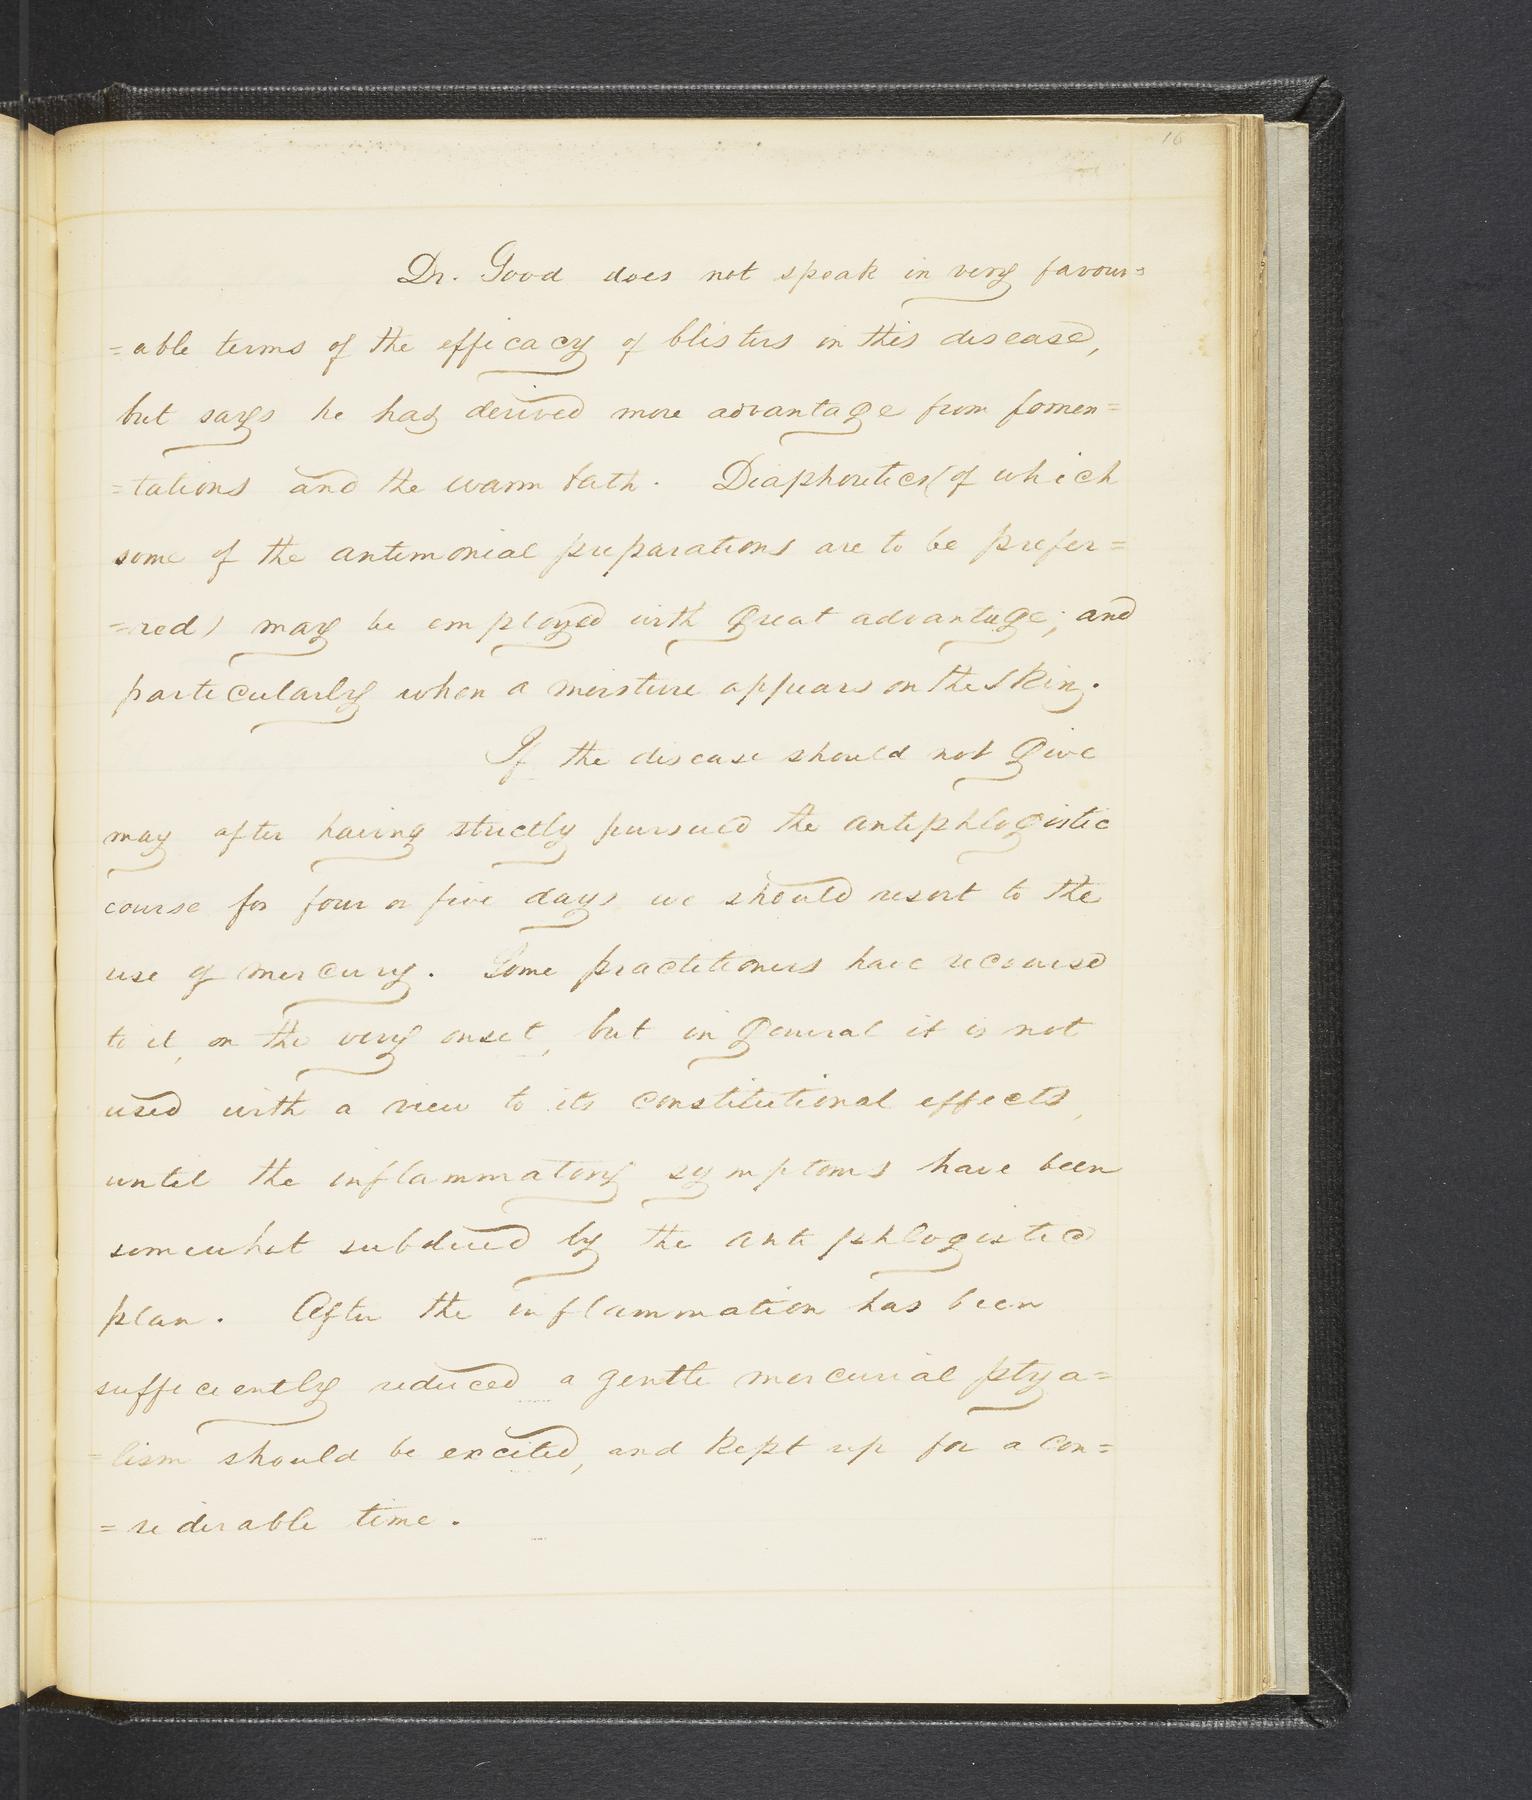 16
Dr. Good does not speak in very favour=
=able terms of the efficacy of blisters in this disease,
but says he has derived more advantage from fomen=
=tations and the warm bath. Diaphoretics (of which
some of the antimonial preparations are to be prefer=
=red) may be employed with great advantage; and
particularly when a moisture appears on the skin.
If the disease should not give
way after having strictly pursued the antiphlogistic
course for four or five days we should resort to the
use of mercury. Some practitioners have recourse
to it, on the very onset, but in general it is not
used with a view to its constitutional effects,
until the inflammatory symptoms have been
somewhat subdued by the antiphlogistic
plan. After the inflammation has been
sufficiently reduced a gentle mercurial ptya=
=lism should be excited, and kept up for a con=
=siderable time.